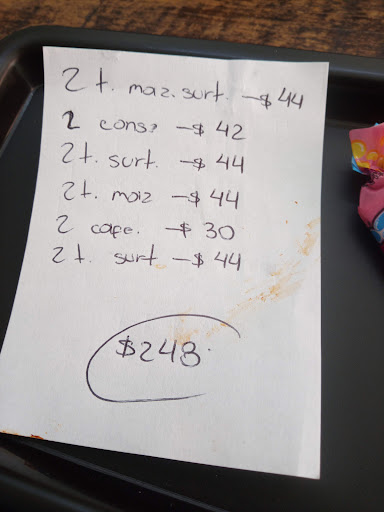 2 t. maz. surt. - $ 44
2 cons? - $ 42
2 t. surt. - $ 44
2 t. maiz - $ 44
2 cafe. - $ 30
2 t. surt - $ 44
$248.